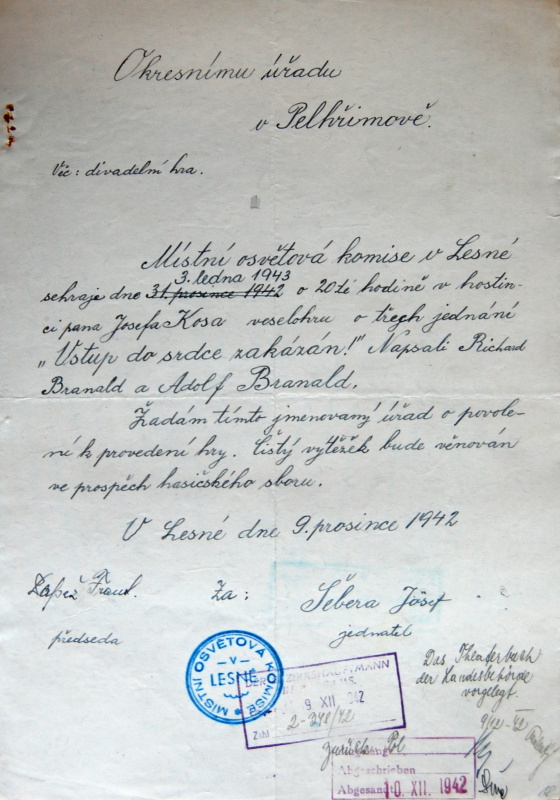 Okresnímu úřadu
v Pelhřimově.
Věc: divadelní hra.
Místní osvětová komise v Lesné
3. ledna 1943
sehraje dne 31. prosince 1942 o 20té hodině v hostin-
ci pana Josefa Kosa veselohru o třech jednání
„Vstup do srdce zakázán!" Napsali Richard
Branald a Adolf Branald.
Žádám tímto jmenovaný úřad o povole-
ní k provedení hry. Čistý výtěžek bude věnován
ve prospěch hasičského sboru.
V Lesné dne 9. prosince 1942
Za:
Šebera Josef
předseda
jednatel
MÍSTNÍ OSVĚTOVÁ KOMISE
V
LESNÉ
DER BEZIRKSHAUPTMANN
9 XII 1942
Zahl 2-348/42
Das Theaterbuch
der Landesbehörde
vorgelegt
zurück Pol
Abgeschrieben
Abgesandt 10. XII. 1942